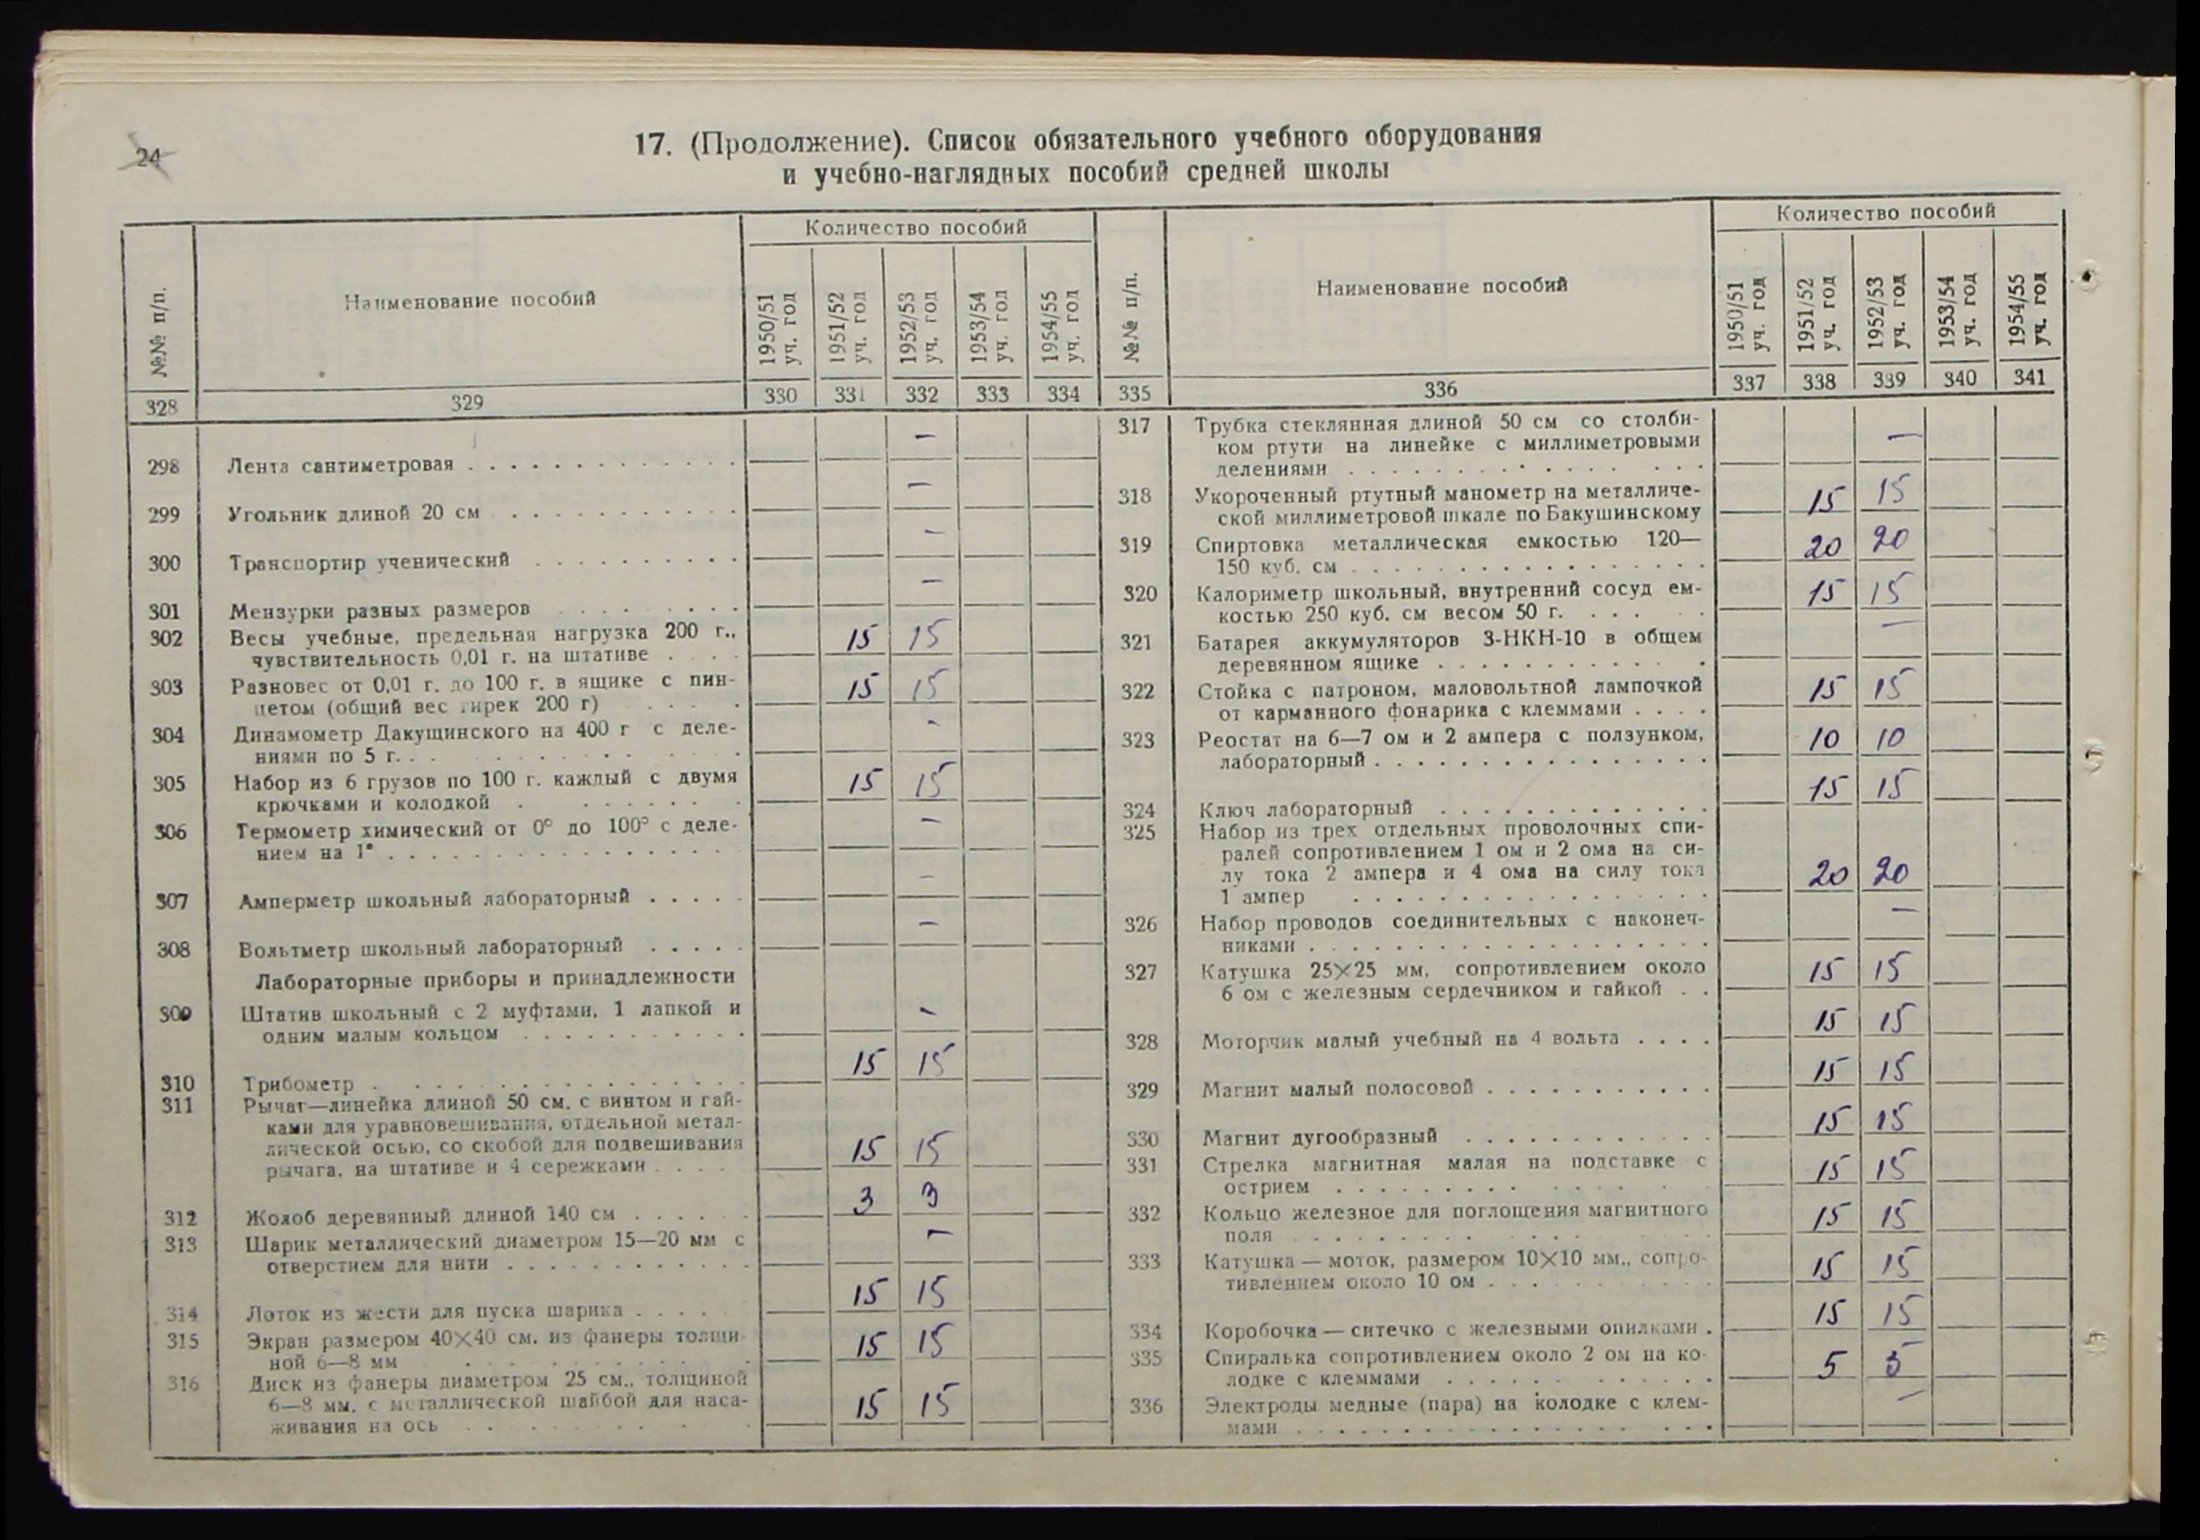 24
17. (Продолжение). Список обязательного учебного оборудования
и учебно-наглядных пособий средней школы
№№ п/п.
Наименование пособий
Количество пособий
1950/51 уч. год
1951/52 уч. год
1952/53 уч. год
1953/54 уч. год
1954/55 уч. год
328 329 330 331 332 333 334
298 Лента сантиметровая —
299 Угольник длиной 20 см —
300 Транспортир ученический —
301 Мензурки разных размеров —
302 Весы учебные, предельная нагрузка 200 г.,
чувствительность 0,01 г. на штативе 15 15
303 Разновес от 0,01 г. до 100 г. в ящике с пин-
цетом (общий вес гирек 200 г) 15 15
304 Динамометр Дакущинского на 400 г с деле-
ниями по 5 г. —
305 Набор из 6 грузов по 100 г. каждый с двумя
крючками и колодкой 15 15
306 Термометр химический от 0° до 100° с деле-
нием на 1° —
307 Амперметр школьный лабораторный —
308 Вольтметр школьный лабораторный —
Лабораторные приборы и принадлежности
309 Штатив школьный с 2 муфтами, 1 лапкой и
одним малым кольцом —
310 Трибометр 15 15
311 Рычаг—линейка длиной 50 см. с винтом и гай-
ками для уравновешивания, отдельной метал-
лической осью, со скобой для подвешивания
рычага, на штативе и 4 сережками 15 15
312 Жолоб деревянный длиной 140 см 3 3
313 Шарик металлический диаметром 15—20 мм с
отверстием для нити —
314 Лоток из жести для пуска шарика 15 15
315 Экран размером 40×40 см. из фанеры толщи-
ной 6—8 мм 15 15
316 Диск из фанеры диаметром 25 см., толщиной
6—8 мм. с металлической шайбой для наса-
живания на ось 15 15
№№ п/п.
Наименование пособий
Количество пособий
1950/51 уч. год
1951/52 уч. год
1952/53 уч. год
1953/54 уч. год
1954/55 уч. год
335 336 337 338 339 340 341
317 Трубка стеклянная длиной 50 см со столби-
ком ртути на линейке с миллиметровыми
делениями —
318 Укороченный ртутный манометр на металличе-
ской миллиметровой шкале по Бакушинскому 15 15
319 Спиртовка металлическая емкостью 120—
150 куб. см 20 20
320 Калориметр школьный, внутренний сосуд ем-
костью 250 куб. см весом 50 г. 15 15
321 Батарея аккумуляторов 3-НКН-10 в общем
деревянном ящике —
322 Стойка с патроном, маловольтной лампочкой
от карманного фонарика с клеммами 15 15
323 Реостат на 6—7 ом и 2 ампера с ползунком,
лабораторный 10 10
324 Ключ лабораторный 15 15
325 Набор из трех отдельных проволочных спи-
ралей сопротивлением 1 ом и 2 ома на си-
лу тока 2 ампера и 4 ома на силу тока
1 ампер 20 20
326 Набор проводов соединительных с наконеч-
никами —
327 Катушка 25×25 мм, сопротивлением около
6 ом с железным сердечником и гайкой 15 15
328 Моторчик малый учебный на 4 вольта 15 15
329 Магнит малый полосовой 15 15
330 Магнит дугообразный 15 15
331 Стрелка магнитная малая на подставке с
острием 15 15
332 Кольцо железное для поглощения магнитного
поля 15 15
333 Катушка — моток, размером 10×10 мм., сопро-
тивлением около 10 ом 15 15
334 Коробочка — ситечко с железными опилками 15 15
335 Спиралька сопротивлением около 2 ом на ко-
лодке с клеммами 5 5
336 Электроды медные (пара) на колодке с клем-
мами —